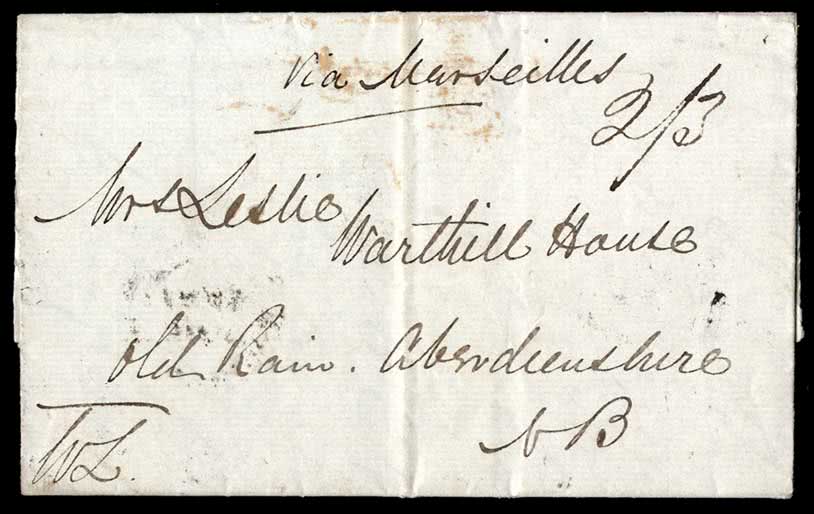 via Marseilles
2/3
Mrs Leslie
Warthill House
Old Rain. Aberdeenshire
NB
WL.